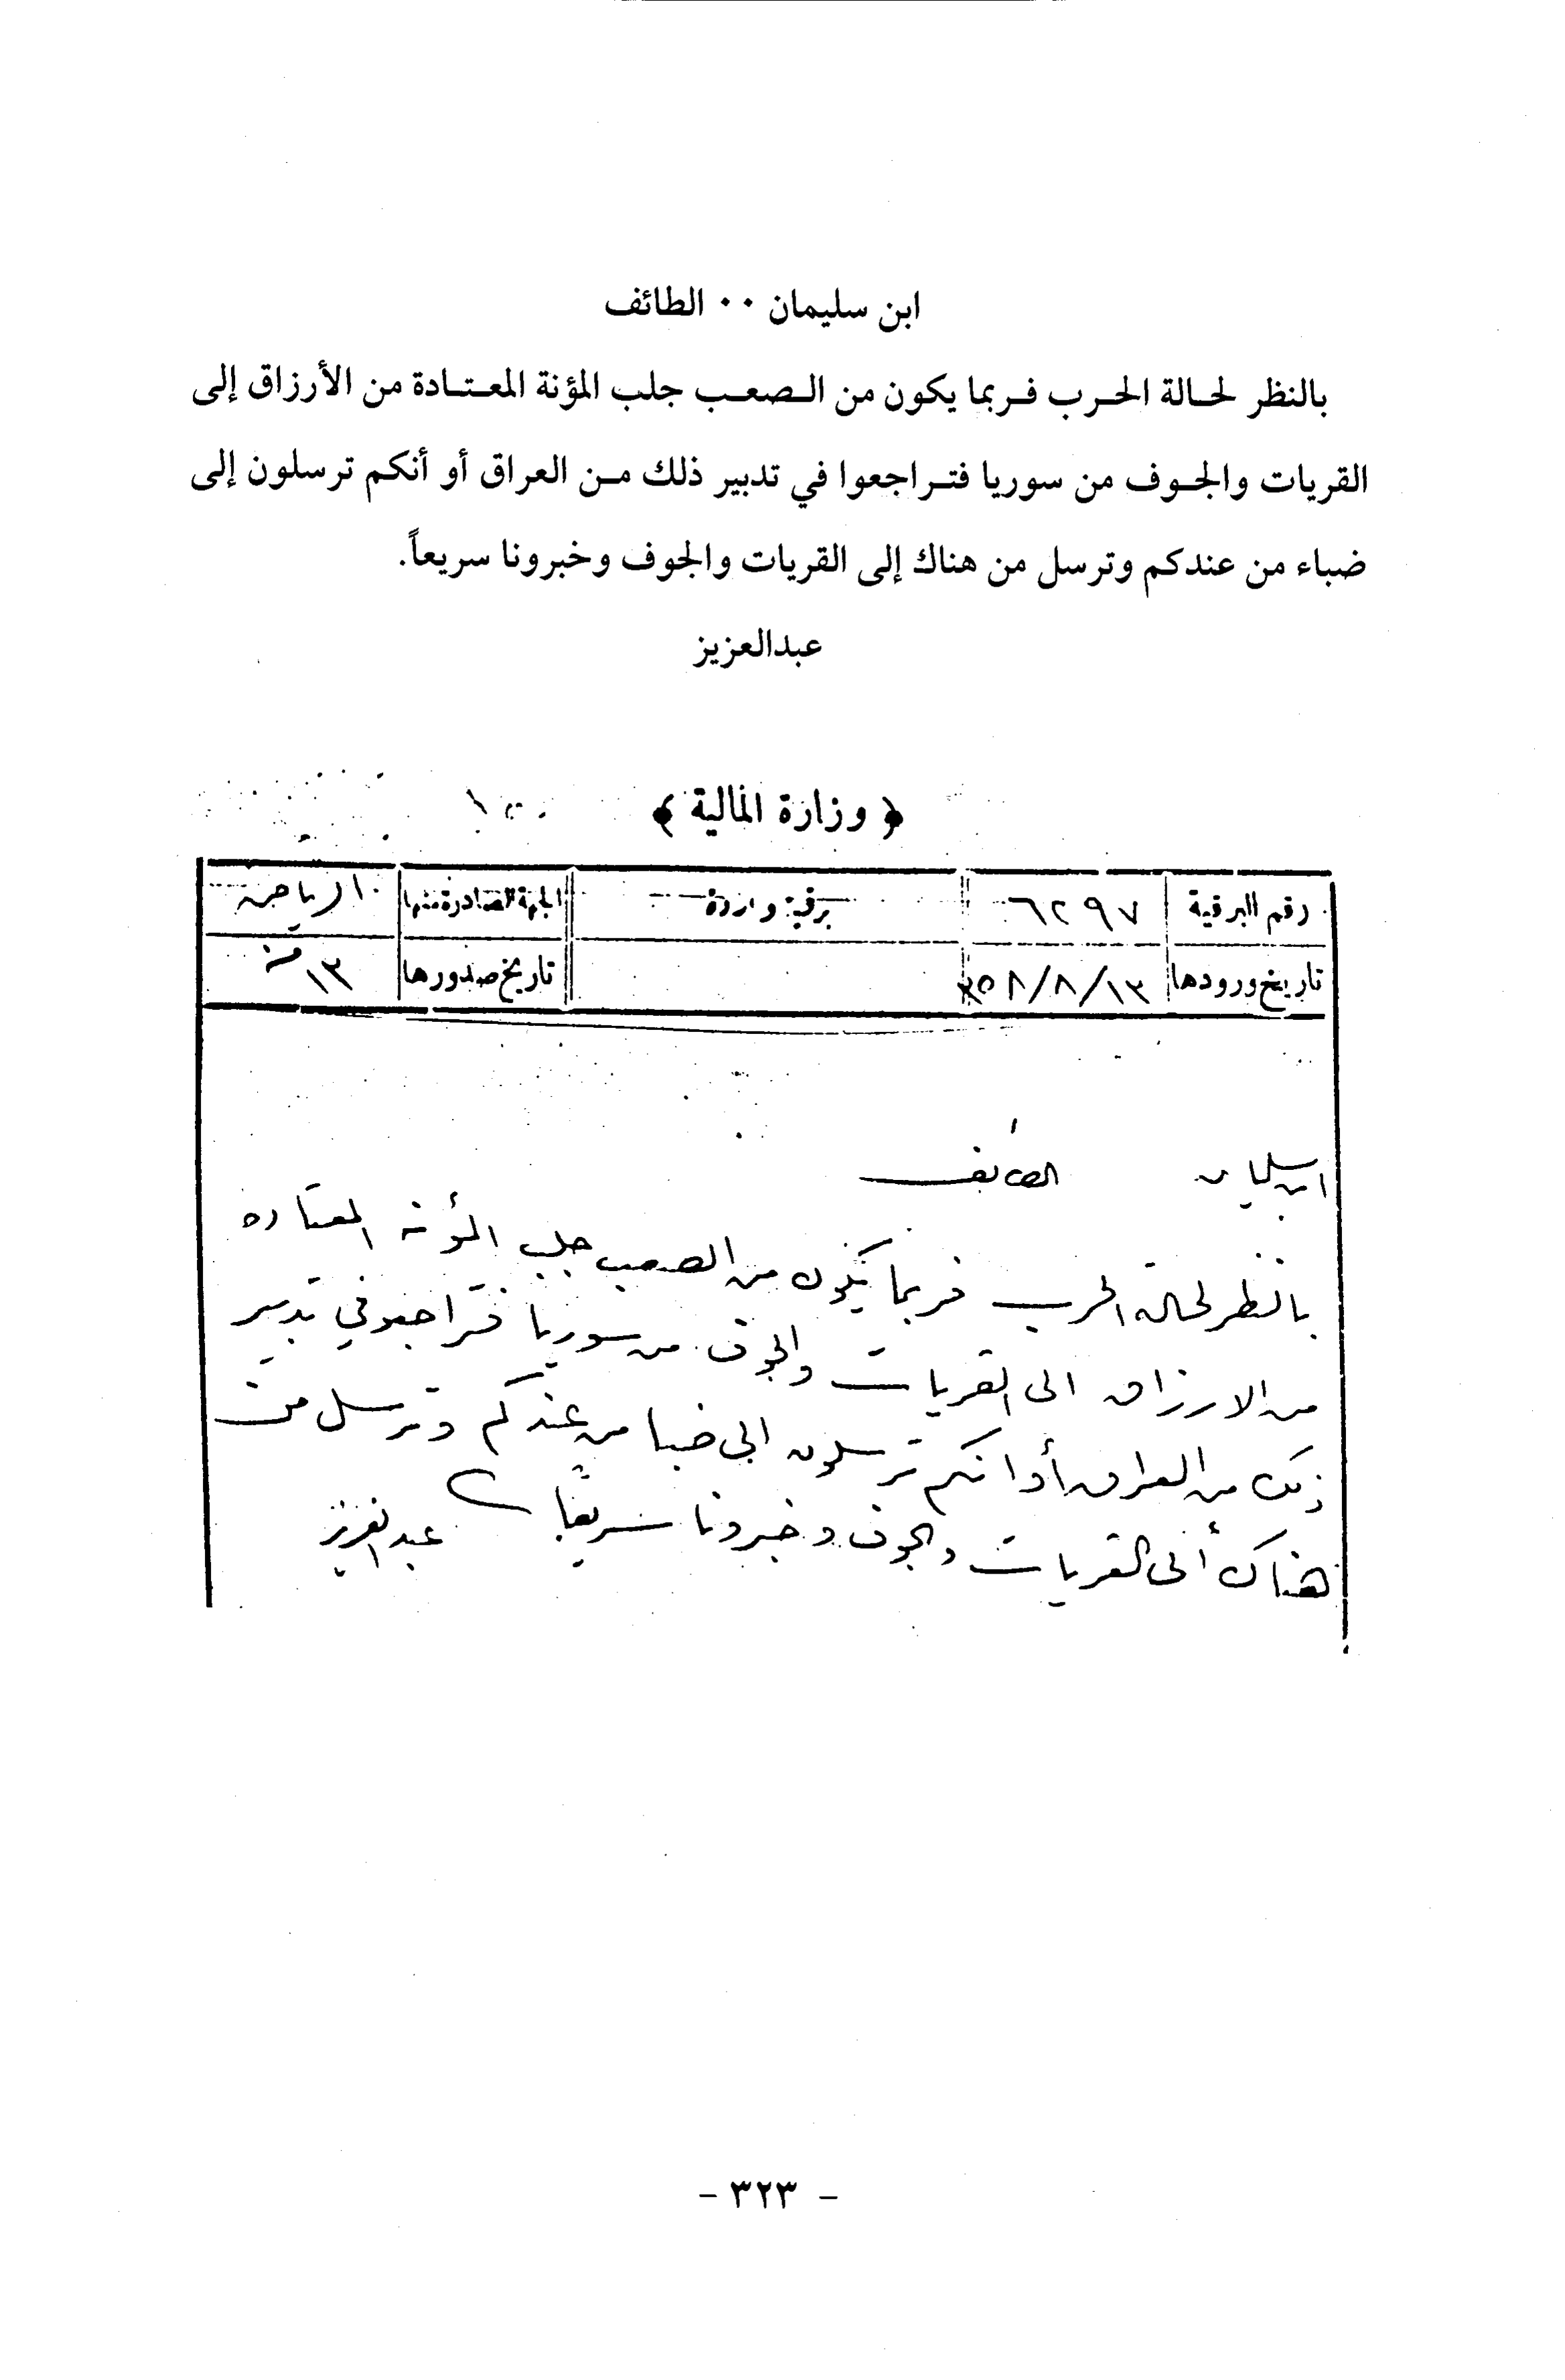 ابن سليمان ٠٠ الطائف
بالنظر لحالة الحرب فربما يكون من الصعب جلب المؤنة المعتادة من الأرزاق إلى
القريات والجوف من سوريا فتراجعوا في تدبير ذلك من العراق أو أنكم ترسلون إلى
ضباء من عندكم وترسل من هناك إلى القريات والجوف وخبرونا سريعاً.
عبدالعزيز
﴿ وزارة المالية ﴾
رقم البرقية ٦٢٩٧ برقية واردة الجهة الصادرة منها الرياض
تاريخ ورودها ١٣/٨/٣٥٨ تاريخ صدورها ١٣ منه
ابن سليمان الطائف
بالنظر لحالة الحرب فربما يكون من الصعب جلب المؤنه المعتاده
من الارزاق الى القريات والجوف من سوريا فتراجعو في تدبير
ذلك من العراق أو انكم ترسلون الى ضبا من عندكم وترسل من
هناك ألى القريات والجوف وخبرونا سريعًا عبدالعزيز
- ٣٢٣ -